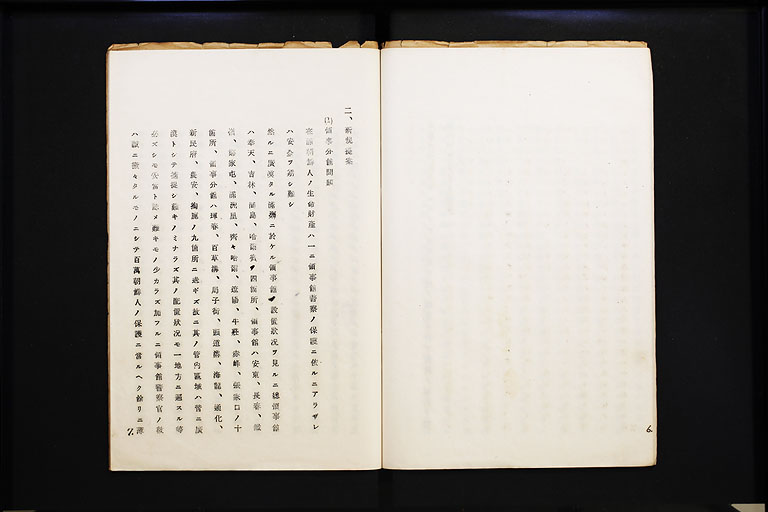 二、新規提案
(1)領事分館開設
在滿朝鮮人ノ生命財産ハ一ニ領事館警察ノ保護ニ依ルニアラザレ
ハ安全ヲ期シ難シ
然ルニ廣漠タル滿洲ニ於ケル領事館ノ設置狀況ヲ見ルニ總領事館
ハ奉天、吉林、間島、哈爾賓ノ四箇所、領事館ハ安東、長春、鐵
嶺、鄭家屯、滿洲里、齊々哈爾、遼陽、牛莊、赤峰、張家口ノ十
箇所、領事分館ハ琿春、百草溝、局子街、頭道溝、海龍、通化、
新民府、農安、掏鹿ノ九箇所ニ過ギズ故ニ其ノ管內區域ハ皆ニ廣
漠トシテ捕捉シ難キノミナラズ其ノ配置狀況モ一地方ニ偏スル等
必ズシモ安當ト認メ難キモノ少カラズ加フルニ領事館警察官ノ數
ハ誠ニ微々タルモノニシテ百萬朝鮮人ノ保護ニ當ルヘク餘リニ薄
7.
6.